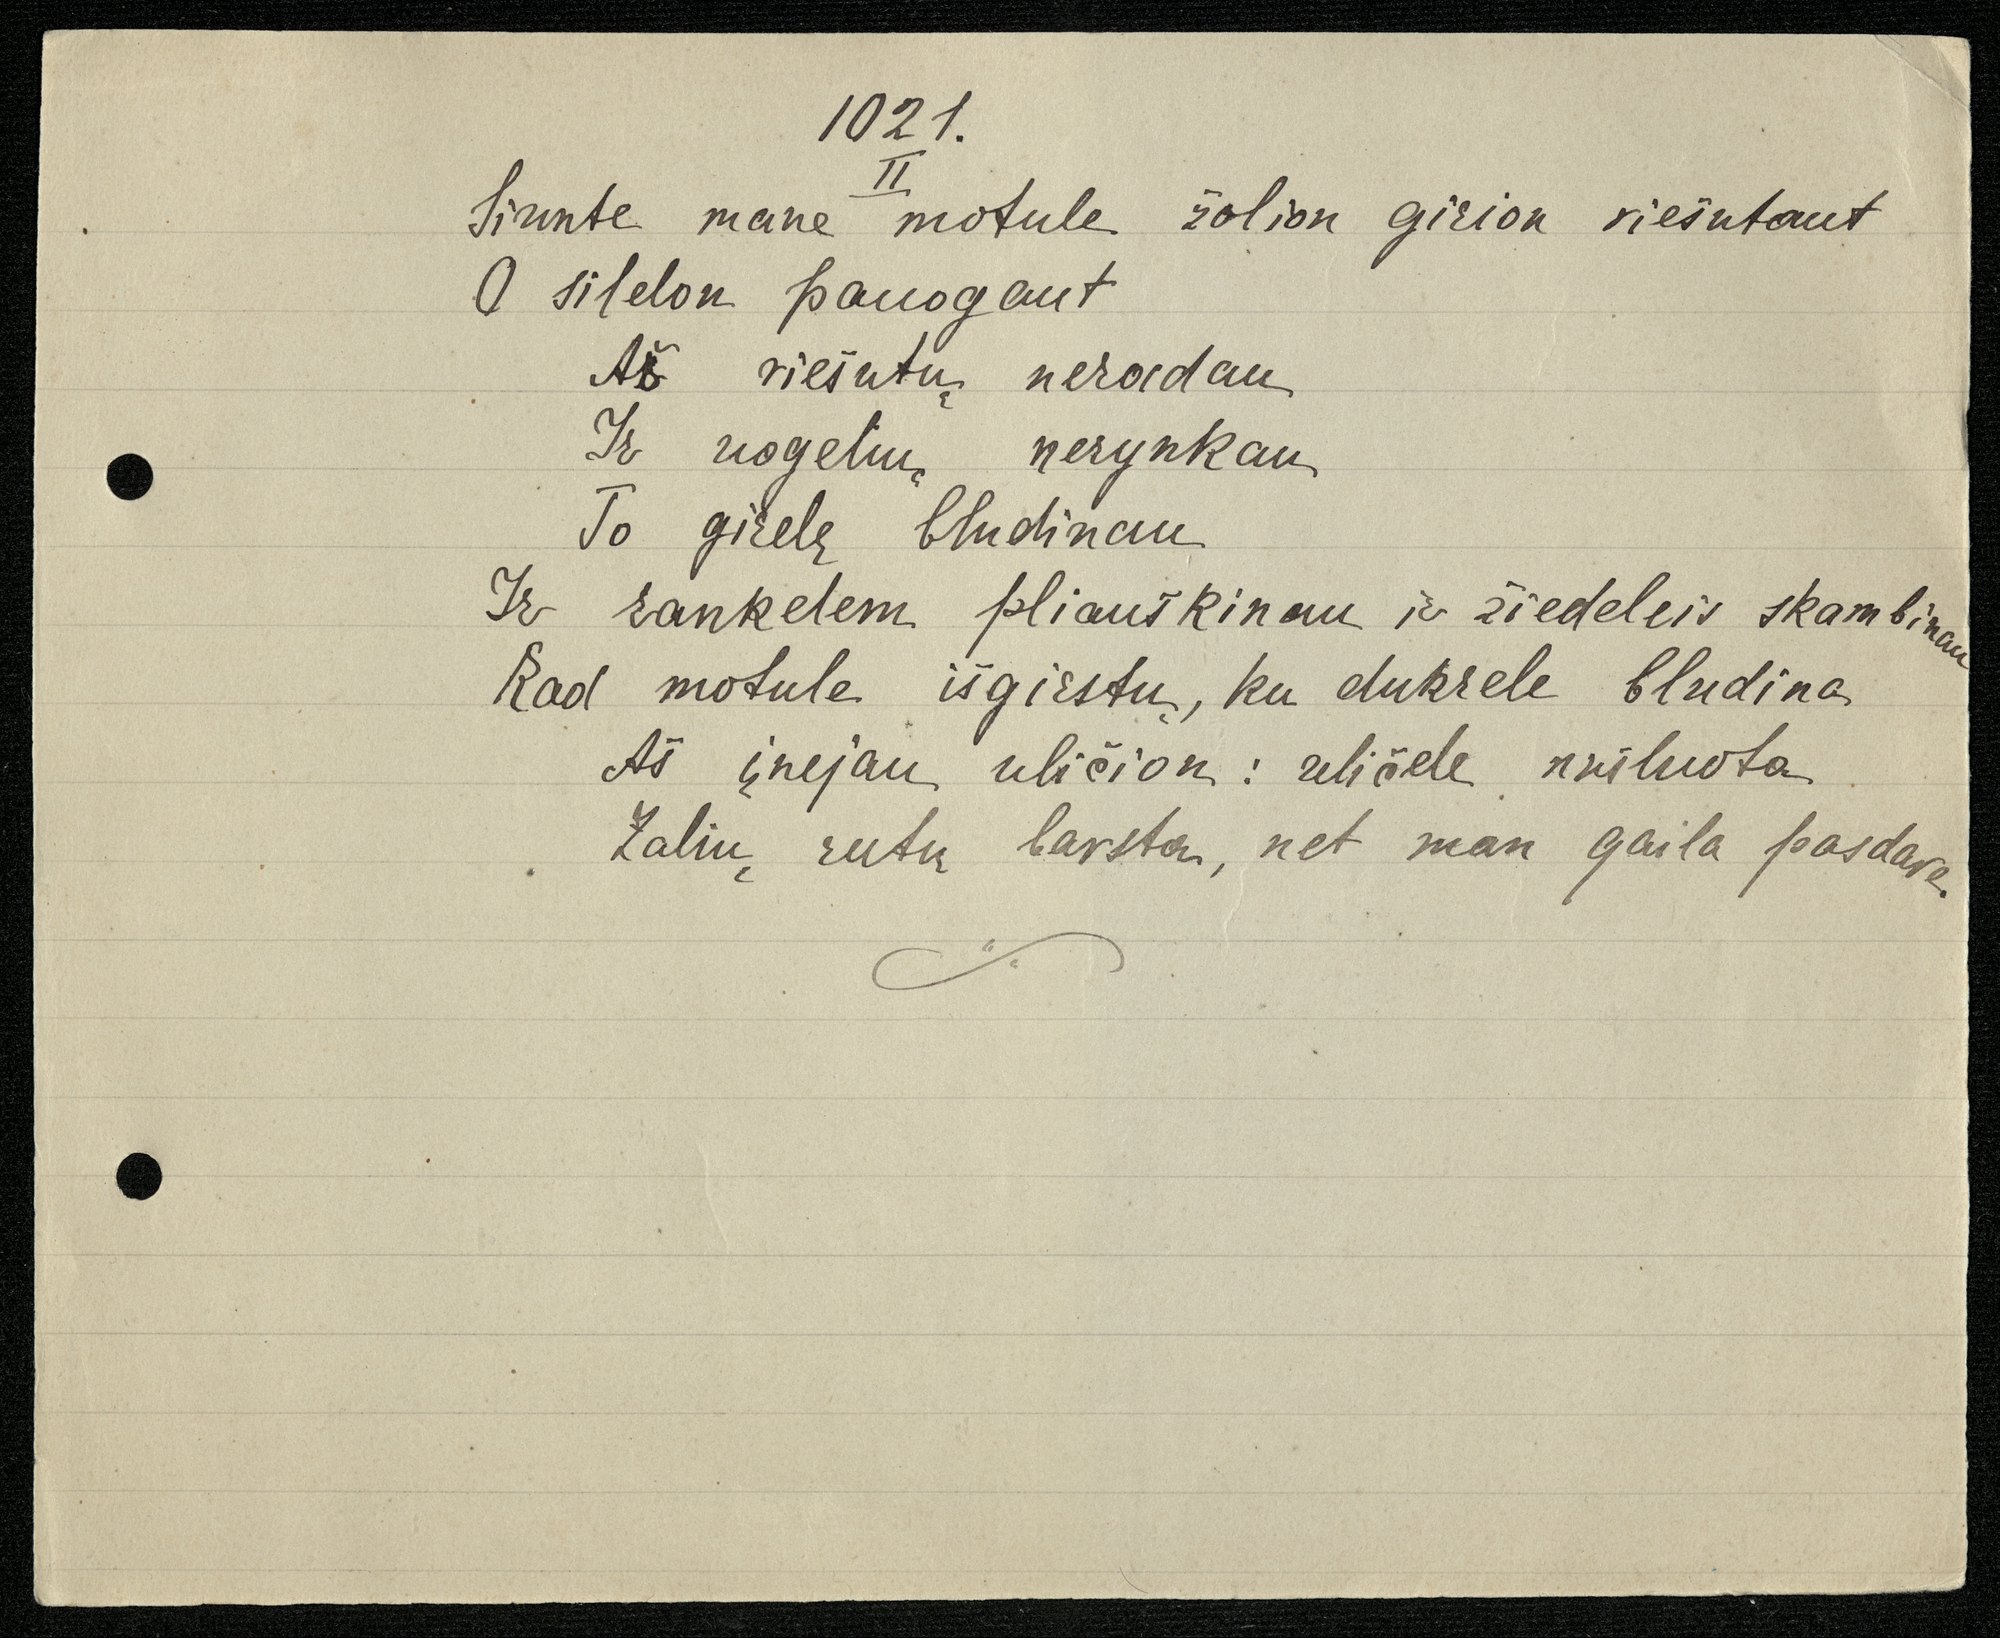 1021.
II
Siunte mane motule žolion girion riešutaut
O silelon pauogaut
Aš riešutų neradau
Ir uogelių nerynkau
To girelę bludinau
Ir rankelem pliauškinau ir žiedeleis skambinau
Kad motule išgirstų, ku dukrele bludina
Aš įnejau uličion: uličele nušluota
Žalių rutų barsta, net man gaila pasdare.